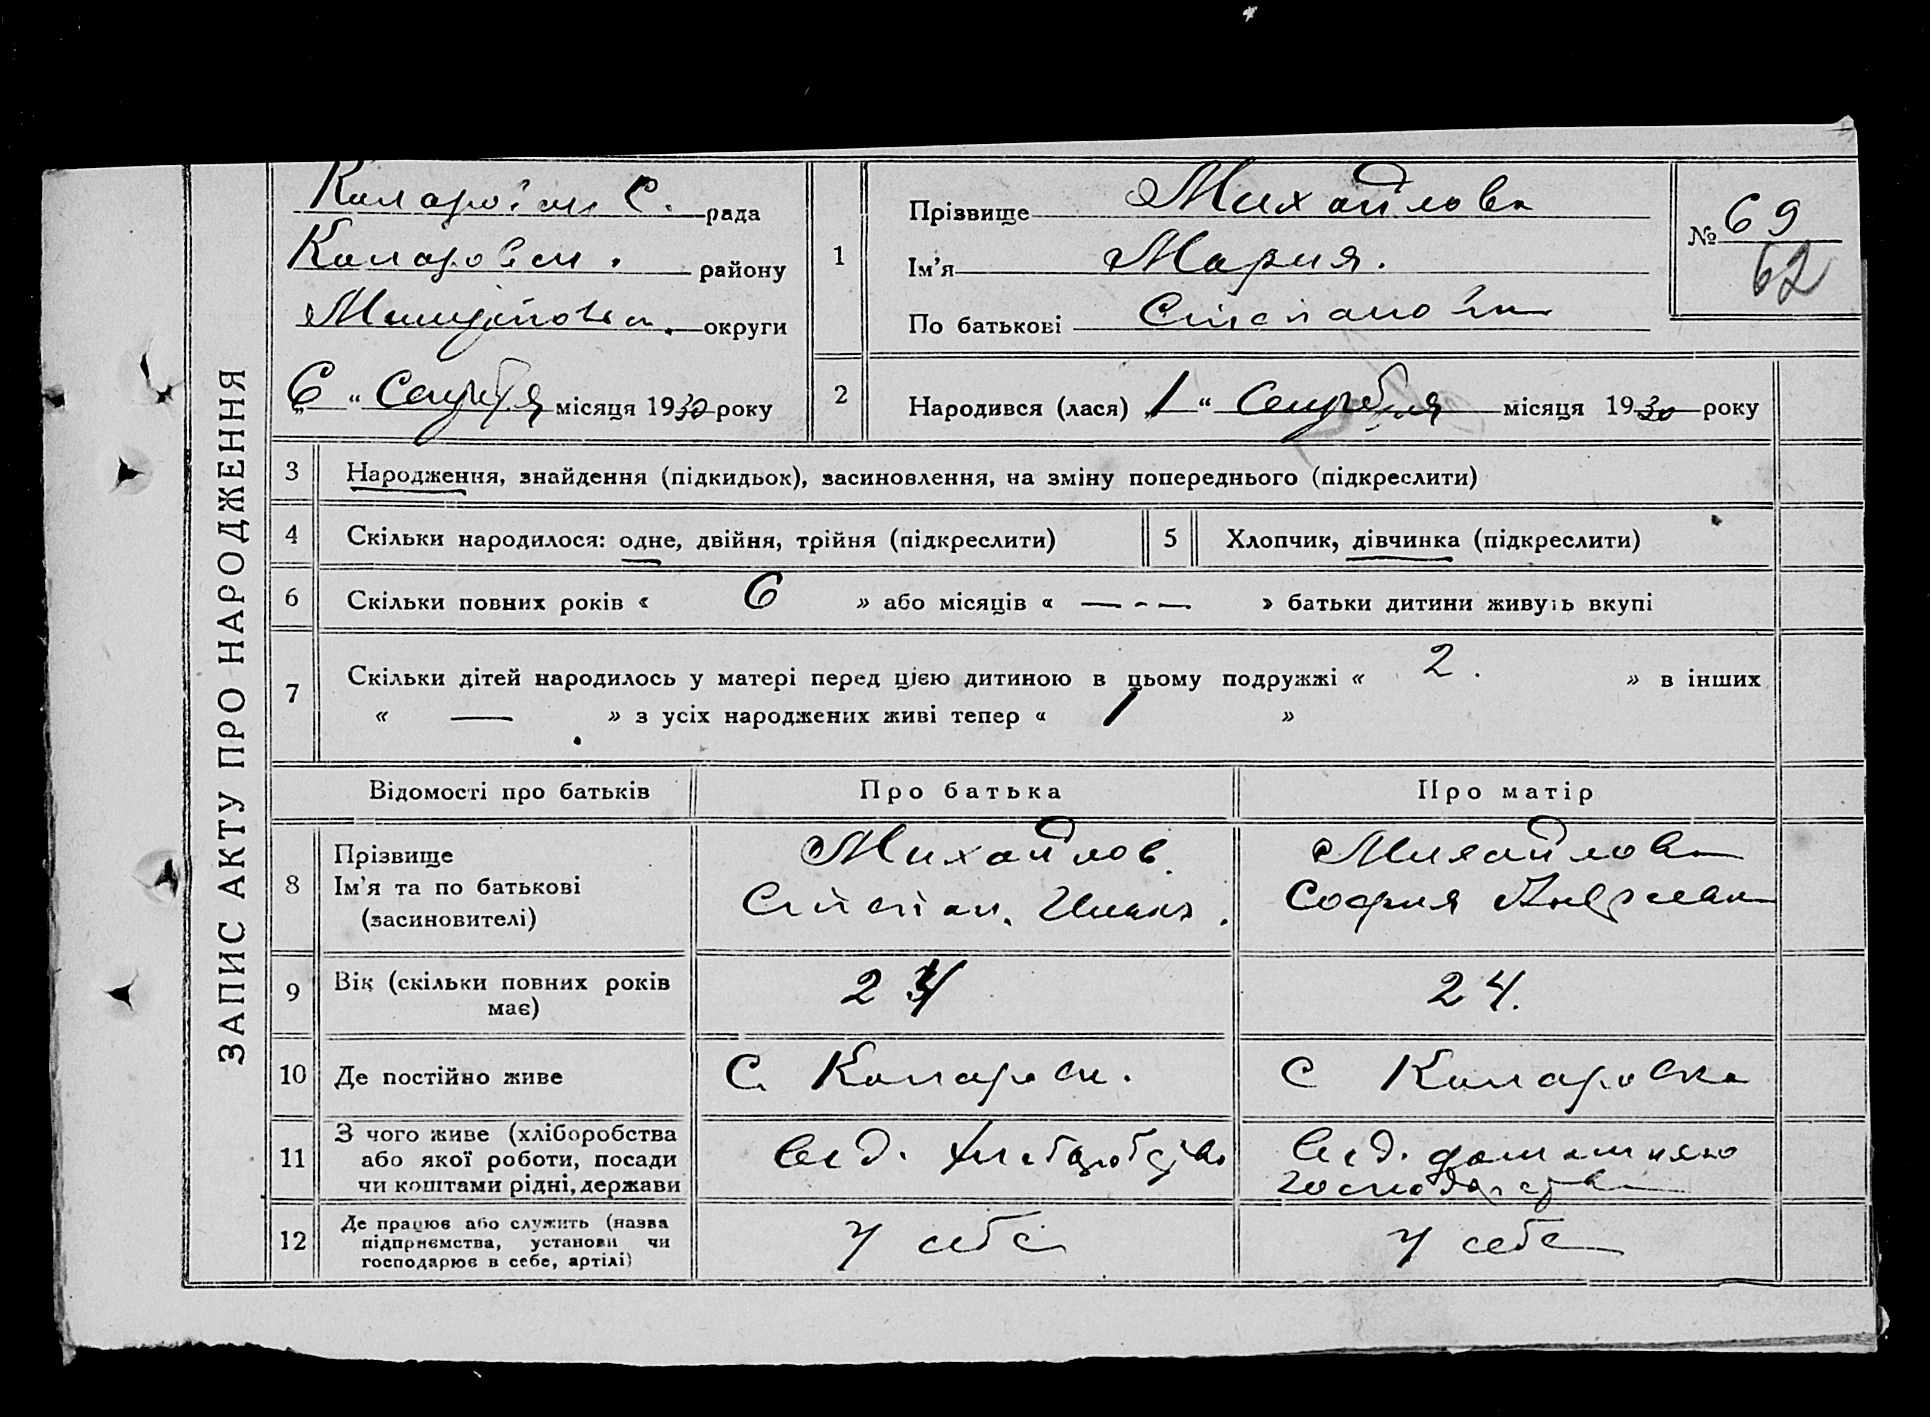 ЗАПИС АКТУ ПРО НАРОДЖЕННЯ
С. рада
району
округи
6 " Сентября місяця 1930 року
1
Прізвище Михайлова
Ім'я Мария.
По батькові Степановн
№ 69
62
2
Народився (лася) „1 " Сентября місяця 1930 року
3 Народження, знайдення (підкидьок), засиновлення, на зміну попереднього (підкреслити)
4 Скільки народилося: одне, двійня, трійня (підкреслити)
5 Хлопчик, дівчинка (підкреслити)
6 Скільки повних років « 6 » або місяців « — - — » батьки дитини живуть вкупі
7 Скільки дітей народилось у матері перед цією дитиною в цьому подружжі « 2. » в інших
« — » з усіх народжених живі тепер « 1 »
Відомості про батьків Про батька Про матір
8 Прізвище
Ім'я та по батькові
(засиновителі)
Михайлов
Степан. Иван.
Михайлова
София
9 Вік (скільки повних років
має)
24
24.
10 Де постійно живе
С.
С Коларовка
11 З чого живе (хліборобства
або якої роботи, посади
чи коштами рідні, держави
Від. хліборобства
Від. домашнього
господарства
12 Де працює або служить (назва
підприємства, установи чи
господарює в себе, артілі)
У себе
У себе